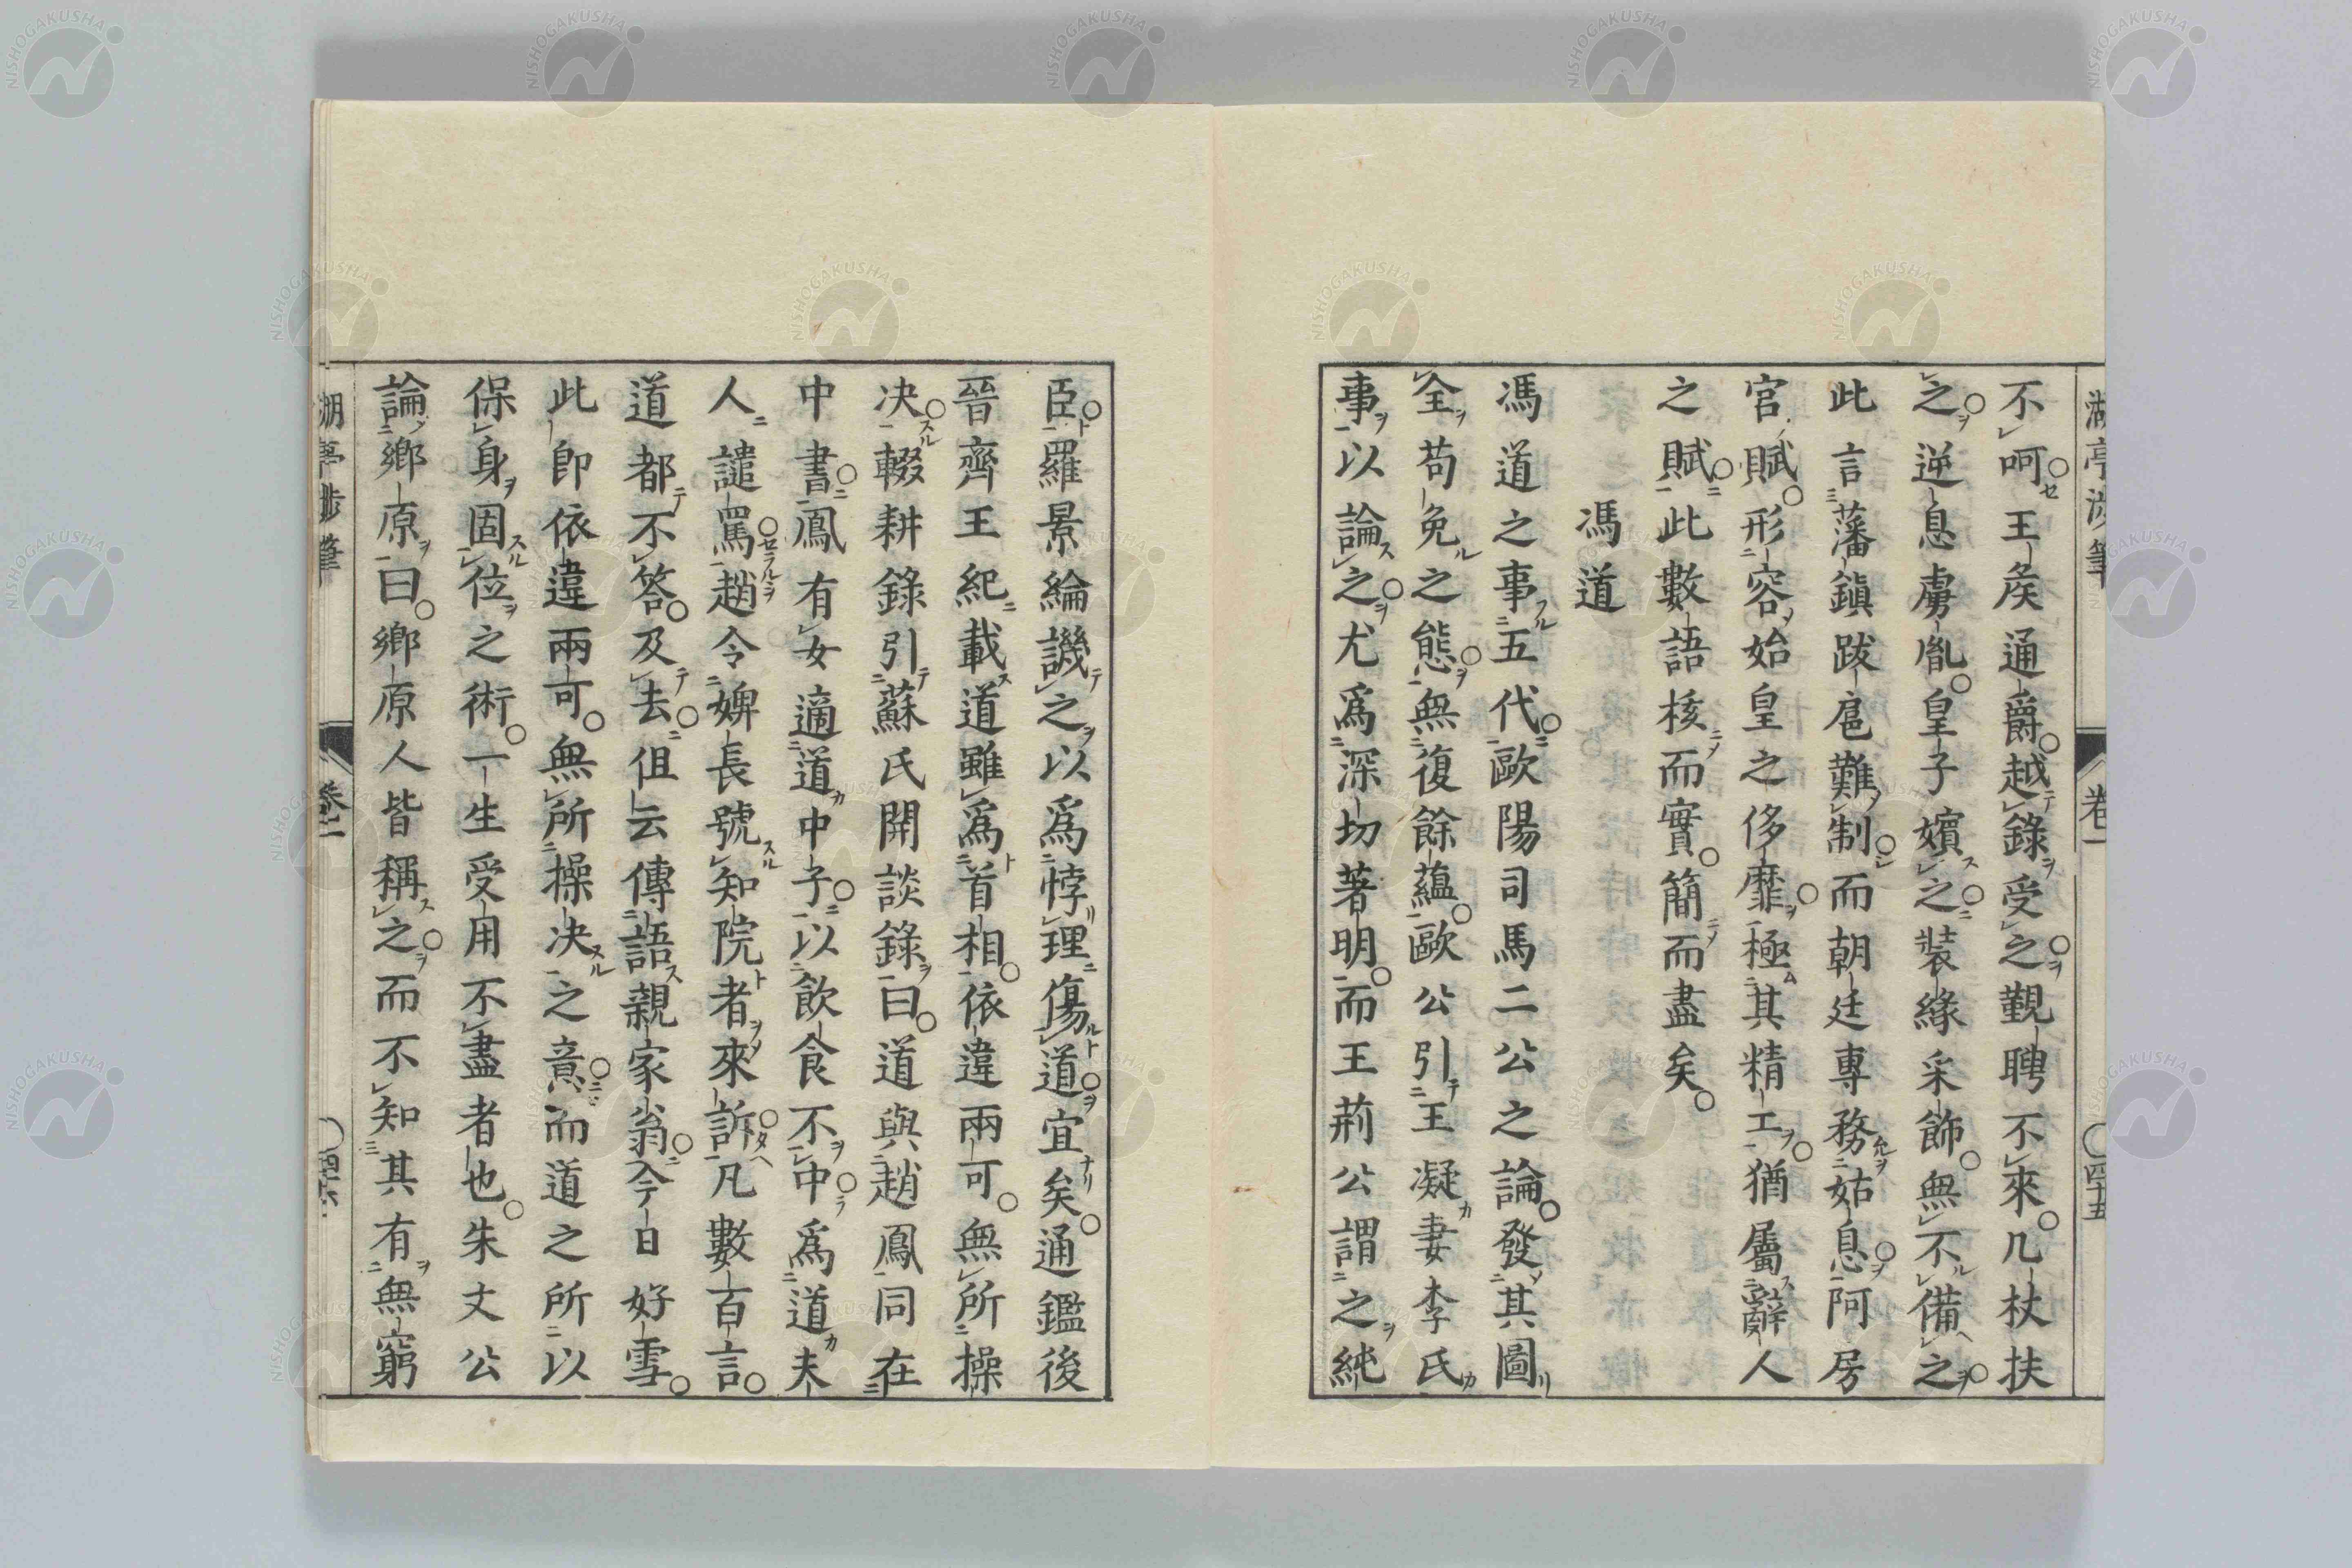 不呵。王矦通爵。越錄受之。覲聘不來。几杖扶
之。逆息虜胤。皇子嬪之。裝緣采飾。無不備之。
此言藩鎭跋扈難制。而朝廷專務姑息。阿房
官賦。形容始皇之侈靡。極其精工。猶屬辭人
之賦。此數語核而實。簡而盡矣。
馮道
馮道之事五代。歐陽司馬二公之論。發其圖
全苟免之態。無復餘蘊。歐公引王凝妻李氏
事以論之。尤爲深切著明。而王荊公謂之純
臣。羅景綸譏之以爲悖理傷道。宜矣。通鑑後
晉齊王紀載道雖爲首相。依違兩可。無所操
决。輟耕錄引蘇氏開談錄曰。道與趙鳳同在
中書。鳳有女適道中子。以飲食不中。爲道夫
人譴罵。趙令婢長號知院者來訴。凡數百言。
道都不答。及去。但云傳語親家翁。今日好雪。
此卽依違兩可。無所操决之意。而道之所以
保身固位之術。一生受用不盡者也。朱文公
論鄉原曰。鄉原人皆稱之。而不知其有無窮
湖亭涉筆
卷一
四十五
湖亭涉筆
卷一
NISHOGAKUSHA